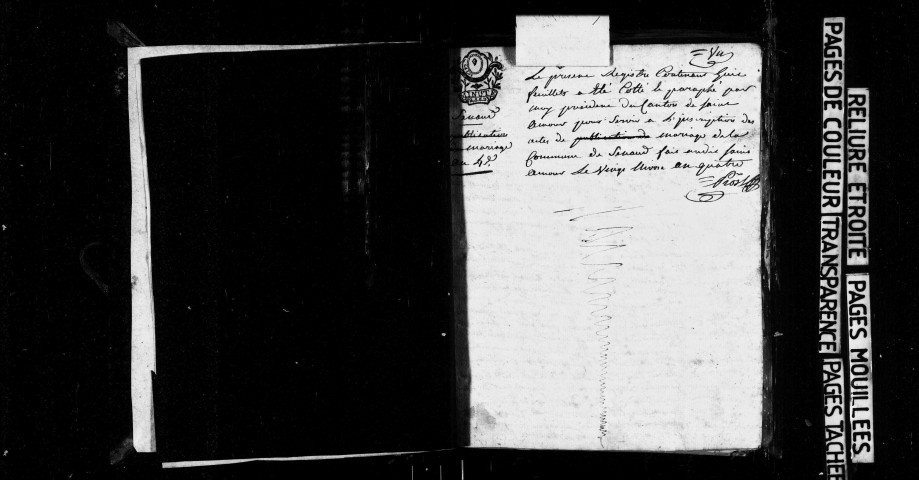 Vu
Le présent Registre Contenant huit
feuillets a été Cotté le paraphé par
moy président du Canton de saint
amour pour servir a L'inscription des
actes de publication de mariage de la
Commune de Senaud fait audit saint
amour Le vingt Nivose an quatre
Prost
Senaud
publication
mariage
an 4e
RELIURE ETROITE
PAGES MOUILLEES
PAGES DE COULEUR
TRANSPARENCE
PAGES TACHEE